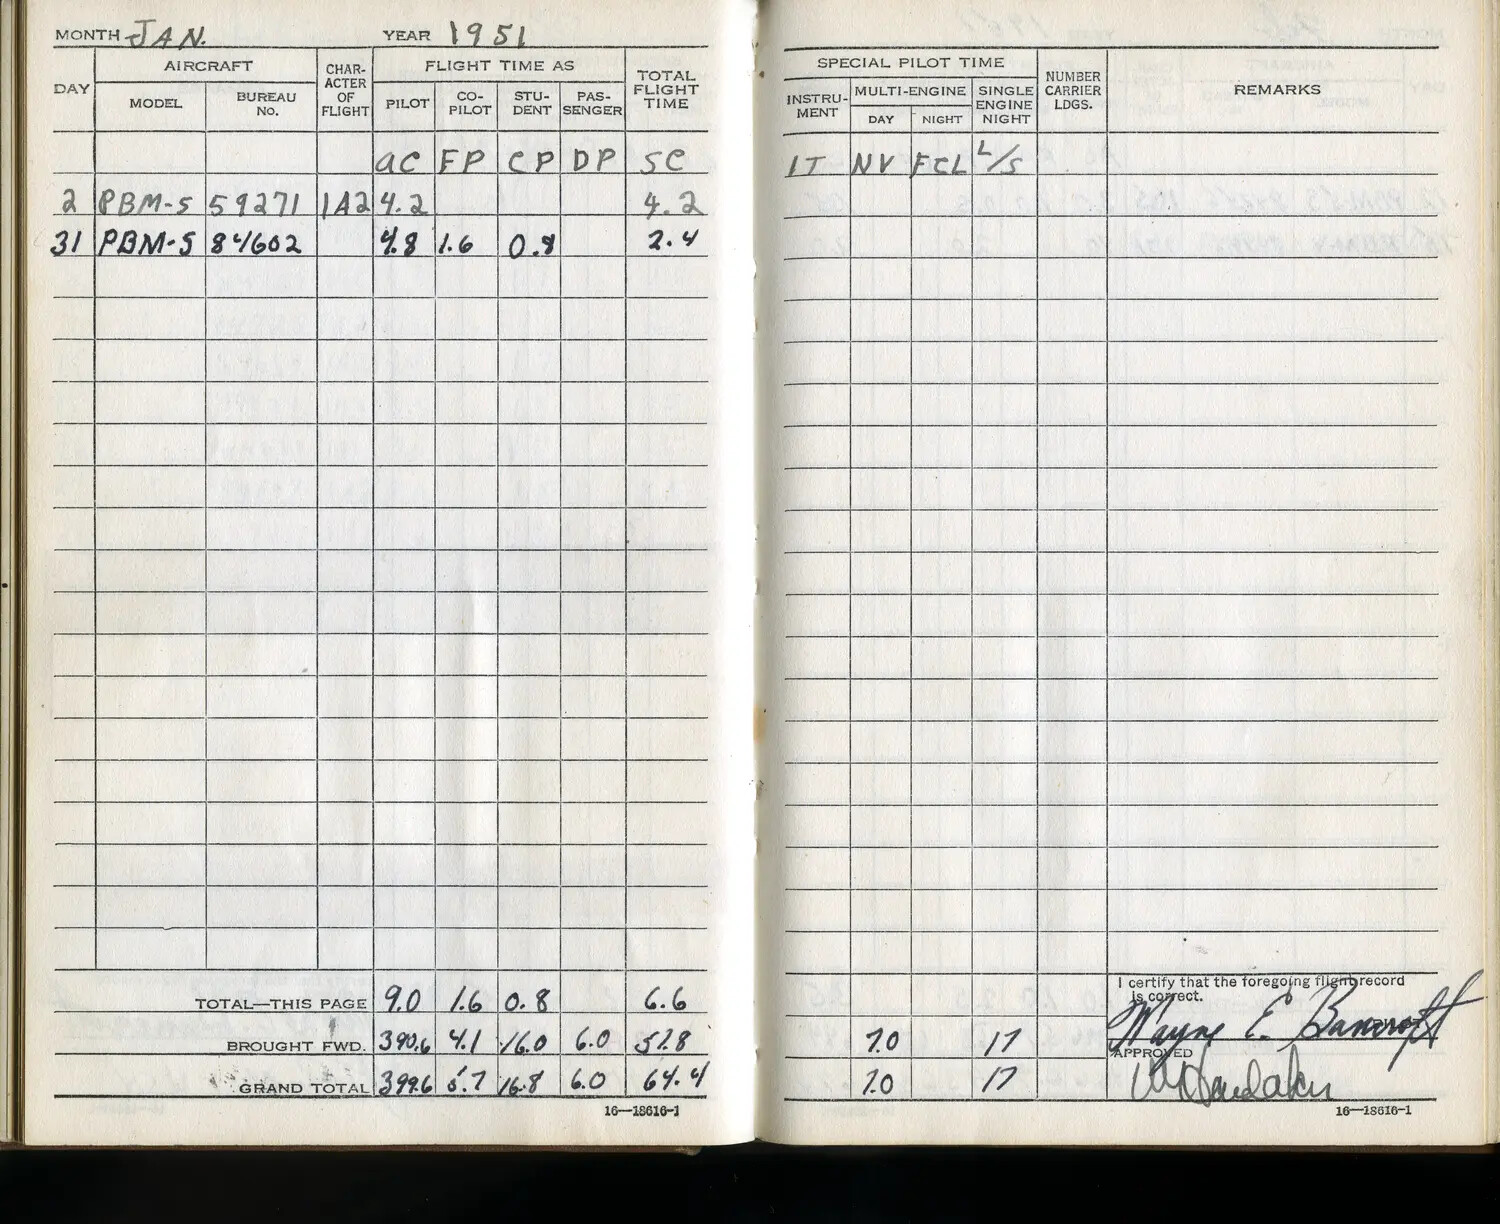 MONTH JAN. YEAR 1951
DAY AIRCRAFT CHAR-ACTER OF FLIGHT FLIGHT TIME AS TOTAL FLIGHT TIME
MODEL BUREAU NO. PILOT CO-PILOT STU-DENT PAS-SENGER
AC FP CP DP SC
2 PBM-5 59271 1A2 4.2 4.2
31 PBM-5 84602 4.8 1.6 0.8 2.4
TOTAL—THIS PAGE 9.0 1.6 0.8 6.6
BROUGHT FWD. 390.6 4.1 16.0 6.0 57.8
GRAND TOTAL 399.6 5.7 16.8 6.0 64.4
16—18616-1
SPECIAL PILOT TIME NUMBER CARRIER LDGS. REMARKS
INSTRU-MENT MULTI-ENGINE SINGLE ENGINE NIGHT
DAY NIGHT
IT NV FCL L/S
I certify that the foregoing flight record
is correct.
Wayne E. Bancroft
7.0 17
APPROVED
7.0 17
16—18616-1